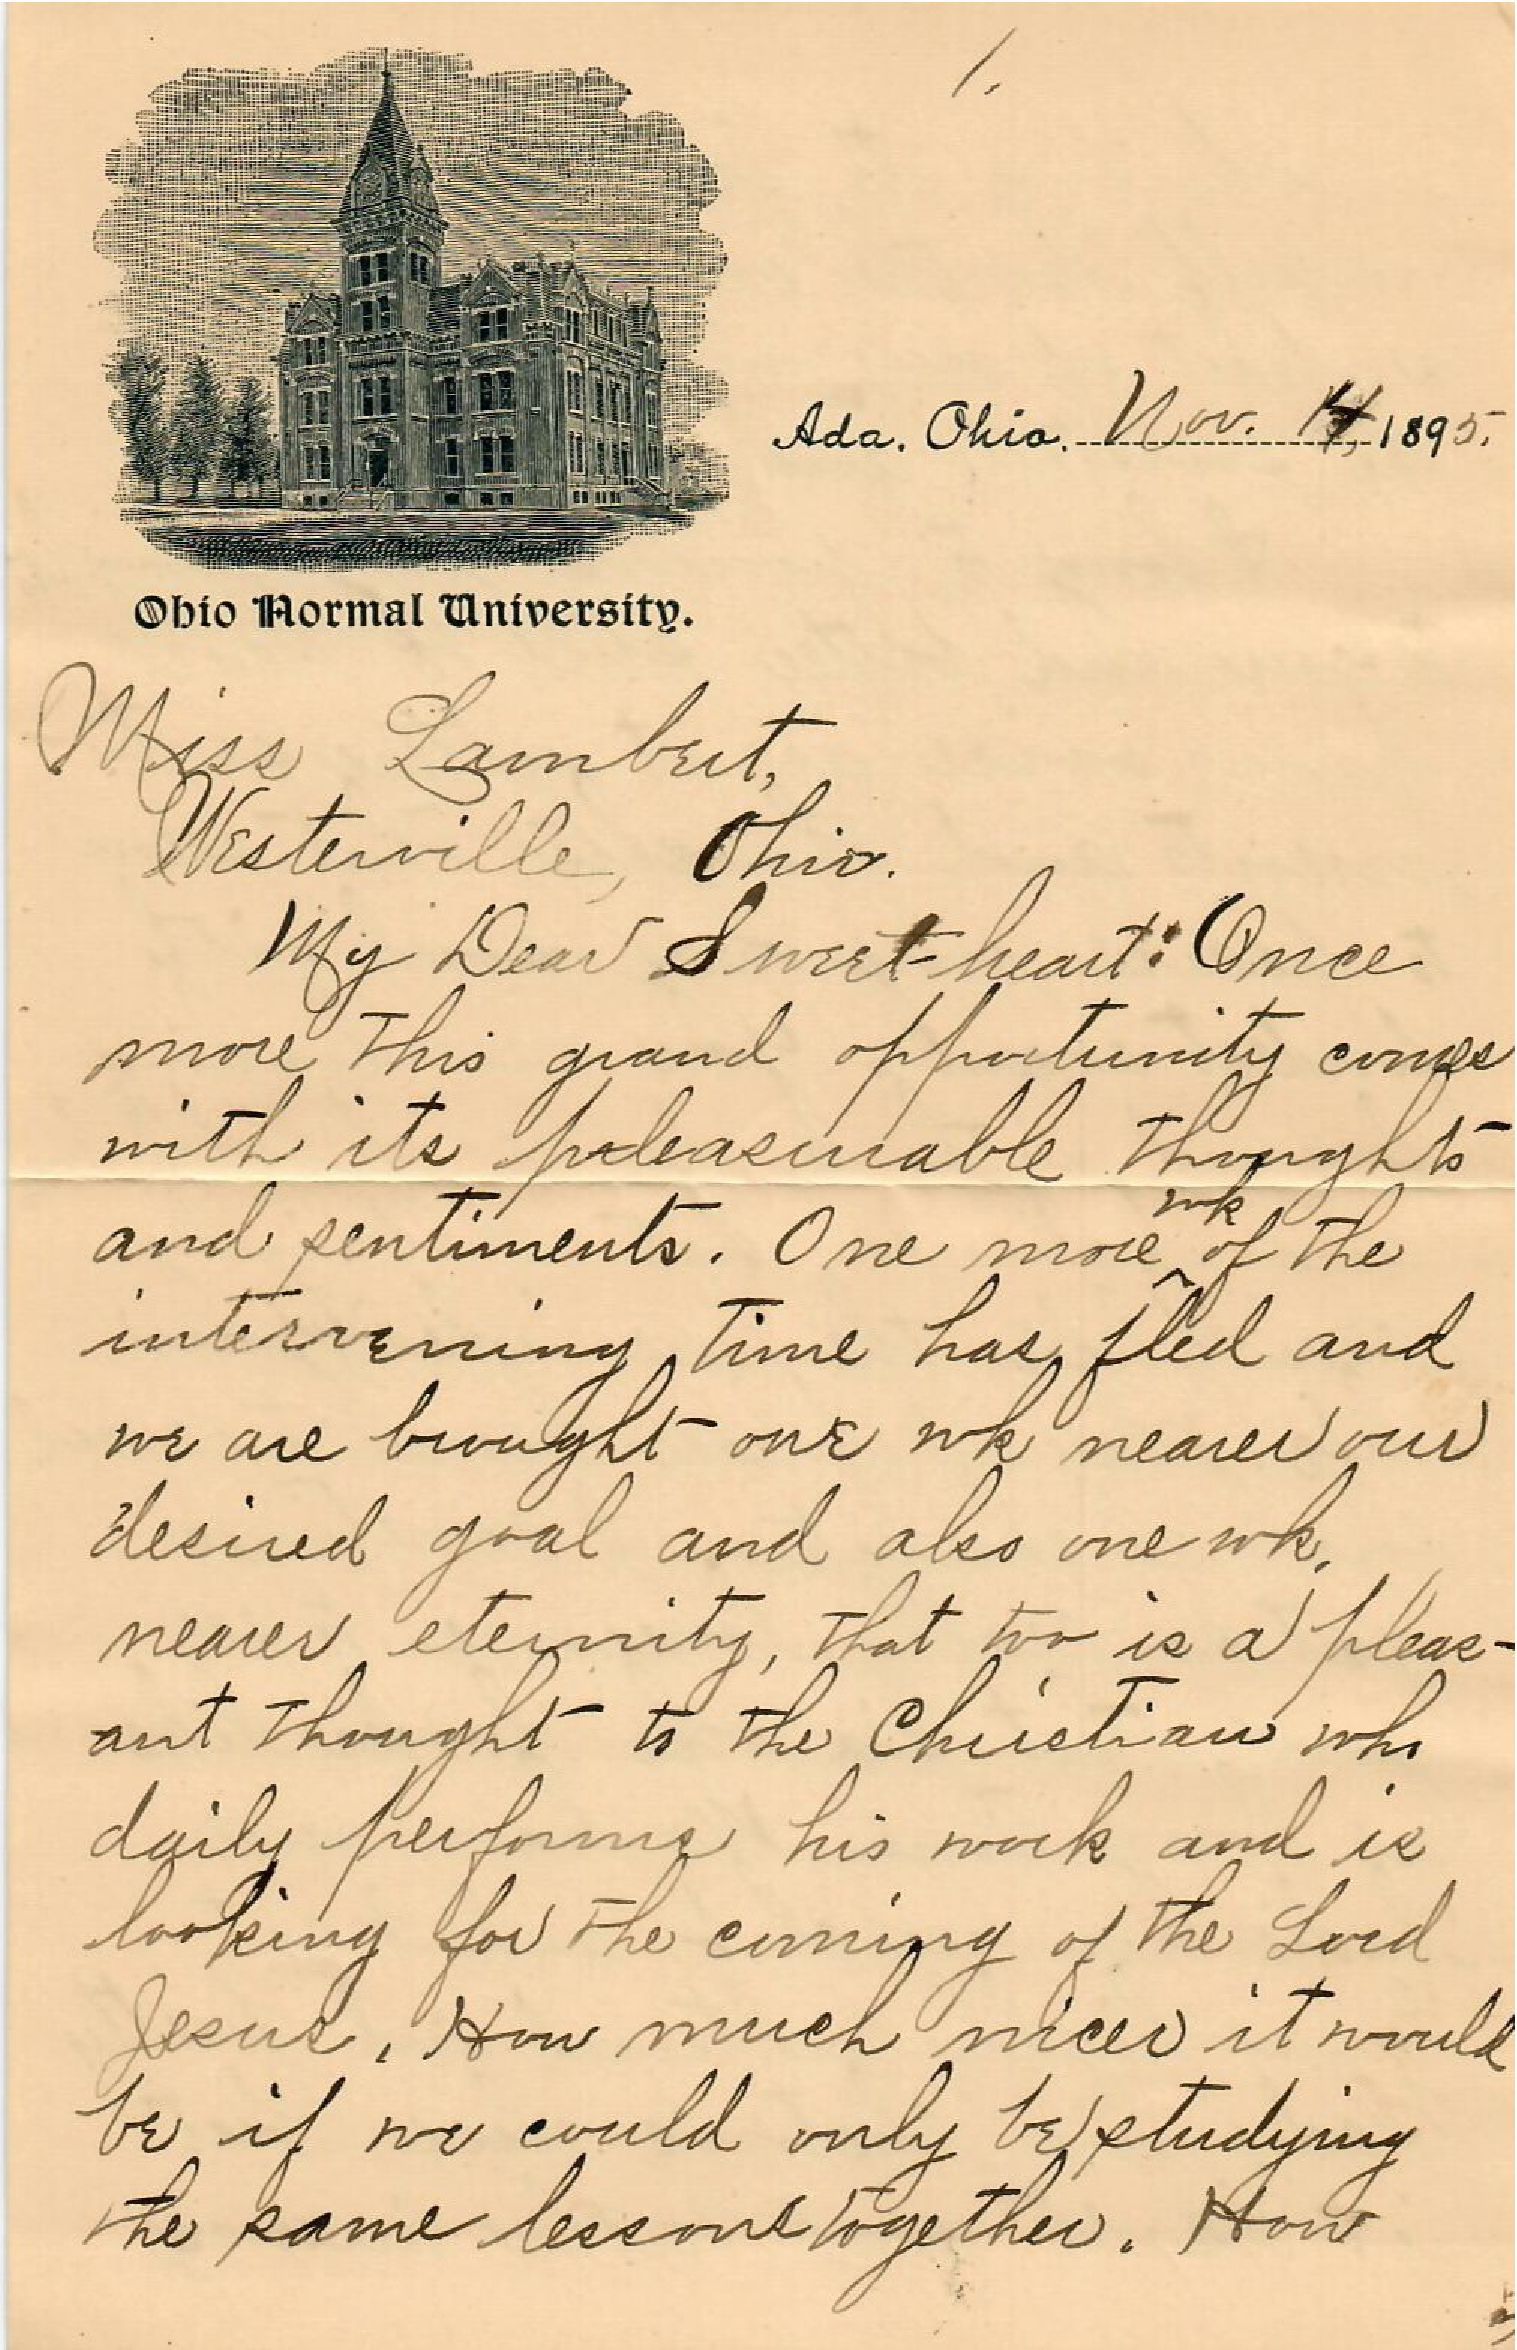 1.
Ada, Ohio. Nov. 14, 1895.
Ohio Normal University.
Miss Lambert,
Westerville, Ohio.
My Dear Sweet-heart: Once
more this grand opportunity comes
with its pleasurable thoughts
and sentiments. One more wk of the
intervening time has fled and
we are brought one wk nearer our
desired goal and also one wk.
nearer eternity, that too is a pleas-
ant thought to the Christian who
daily performs his work and is
looking for the coming of the Lord
Jesus. How much nicer it would
be if we could only be studying
the same lessons together. How